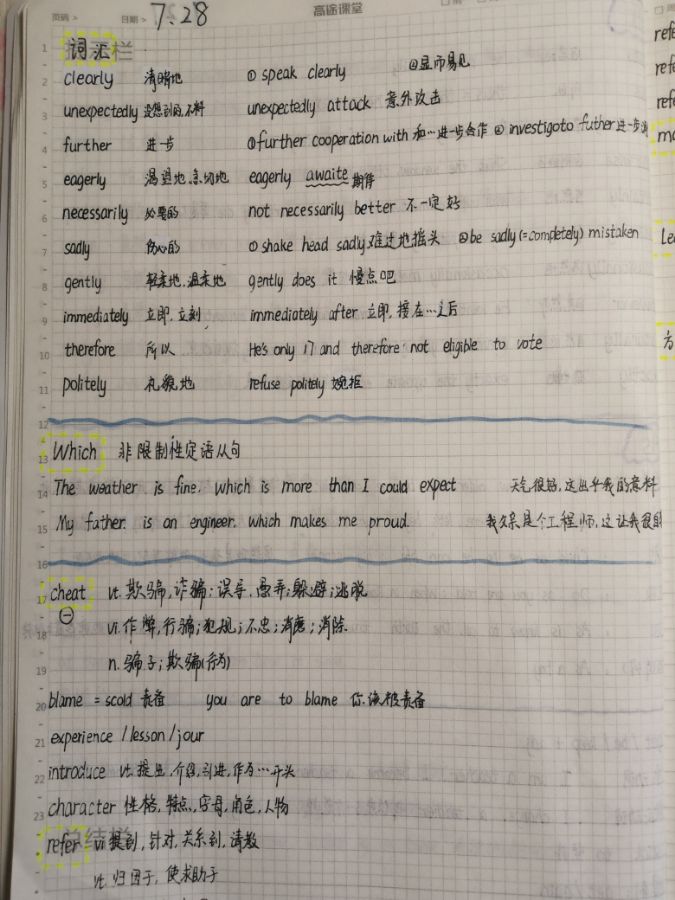 页码 > 日期 > 7.28 高途课堂
词汇
clearly 清晰地 ① speak clearly ②显而易见
unexpectedly 没想到的,不料 unexpectedly attack 意外攻击
further 进一步 ①further cooperation with 和…进一步合作 ② investigoto futher 进一步
eagerly 渴望地,急切地 eagerly awaite 期待
necessarily 必要的 not necessarily better 不一定好
sadly 伤心的 ①shake head sadly 难过地摇头 ②be sadly(=completely) mistaken
gently 轻柔地,温柔地 gently does it 慢点吧
immediately 立即,立刻 immediately after 立即,接在…之后
therefore 所以 He's only 17 and therefore not eligible to vote
politely 礼貌地 refuse politely 婉拒
Which 非限制性定语从句
The weather is fine. which is more than I could expect 天气很好,这出乎我的意料
My father. is an engineer. which makes me proud. 我父亲是个工程师,这让我很自
cheat vt. 欺骗,诈骗;误导,愚弄;躲避;逃脱
vi. 作弊,行骗;犯规;不忠;消磨;消除.
n. 骗子;欺骗(行为)
blame = scold 责备 you are to blame 你该被责备
experience / lesson / jour
introduce vt. 提出,介绍,引进,作为…开头
character 性格,特点,字母,角色,人物
refer vi 提到,针对,关系到,请教
vt. 归因于,使求助于
refe
refe
refe
mo
Le
方